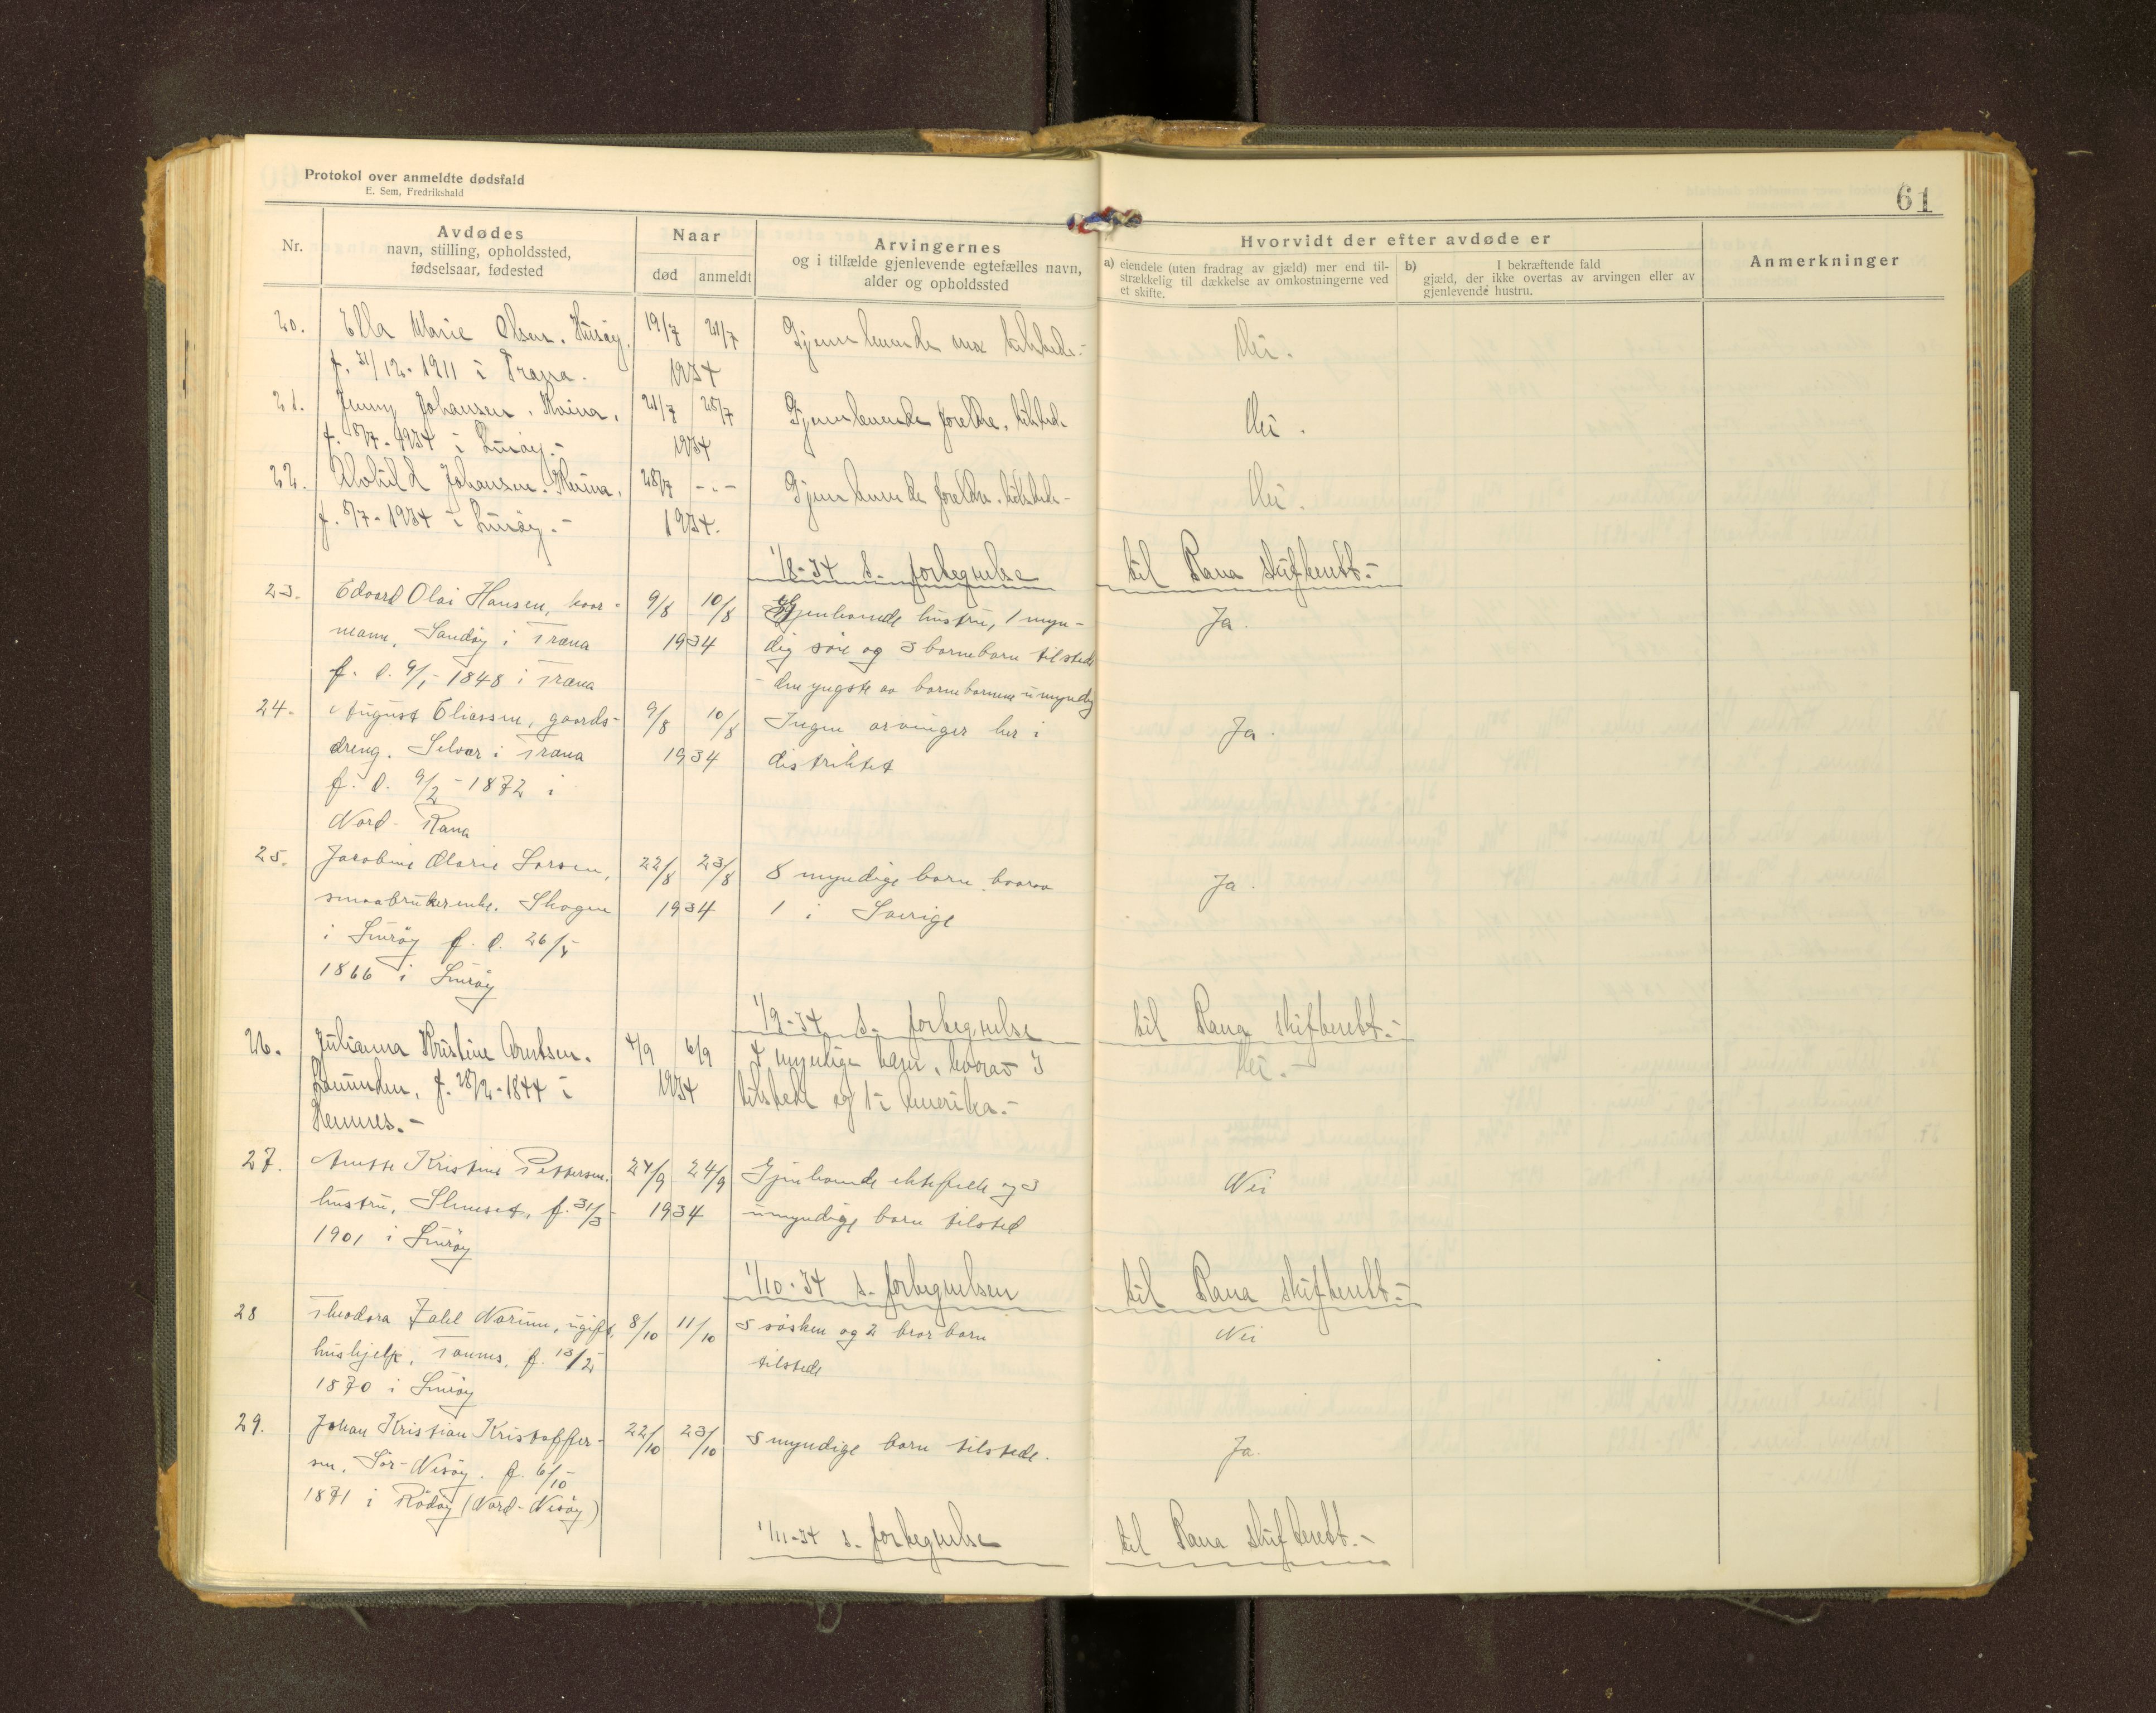 Protokol over anmeldte dødsfald
E. Sem, Fredrikshald
61
Nr.
Avdødes
navn, stilling, opholdssted,
fødselsaar, fødested
Naar
død anmeldt
Arvingernes
og i tilfælde gjenlevende egtefælles navn,
alder og opholdssted
Hvorvidt der efter avdøde er
a) eiendele (uten fradrag av gjæld) mer end til-
strækkelig til dækkelse av omkostningerne ved
et skifte.
b) I bekræftende fald
gjæld, der ikke overtas av arvingen eller av
gjenlevende hustru.
Anmerkninger
20. Ella Marie Olsen. Husøy. 19/7 21/7 Gjenlevende tilstede.- Nei.
f. 31/12-1911 i Træna. 1934
21. Jenny Johansen, Kvina, 21/7 25/7 Gjenlevende foreldre, tilstede Nei.
f. 1934 i Lurøy.- 1934
22. Alvhild Johansen. Kvina, 28/7 -"- Gjenlevende foreldre, tilstede- Nei.
f. 5/7-1934 i Lurøy.- 1934.
1/8-34 s. fortegnelse til Rana skifterett.-
23. Edvard Olai Hansen, kaar- 9/8 10/8 Gjenlevende hustru, 1 myn- Ja.
mann, Sandøy i Træna 1934 dig søn og 3 barnebarn tilstede
f. d. 9/1-1848 i Træna - den yngste av barnebarnene umyndig
24. August Eliassen, gaards- 9/8 10/8 Ingen arvinger her i Ja.
dreng. Selvær i Træna 1934 distriktet
f. d. 9/2-1872 i
Nord-Rana
25. Jacobine Olarie Larsen, 22/8 23/8 8 myndige barn hvorav Ja.
smaabrukerenke. Skogen 1934 1 i Sverige
i Lurøy f. d. 26/5
1866 i Lurøy
1/9-34 s. fortegnelse til Rana skifterett.-
26. Julianna Kristine Arntsen. 4/9 6/9 4 myndige barn, hvorav 3 Nei.-
f. 28/2-1844 i 1934 tilstede og 1 i Amerika.-
Hemnes.-
27. Anette Kristine Pettersen, 24/9 24/9 Gjenlevende ektefelle og 3 Nei
hustru, f. 31/3 1934 umyndige barn tilsted
1901 i Lurøy
1/10-34 s. fortegnelsen til Rana skifterett.-
28 Theodora Zalel Norum, ugift, 8/10 11/10 5 søsken og 2 bror barn Nei
hushjelp, Tonnes, f. 13/2 tilstede
1870 i Lurøy
29. Johan Kristian Kristoffer- 22/10 23/10 5 myndige barn tilstede. Ja.
sen, Sør-Nesøy. f. 6/10
1871 i Rødøy (Nord-Nesøy)
1/11-34 s. fortegnelse til Rana skifterett.-